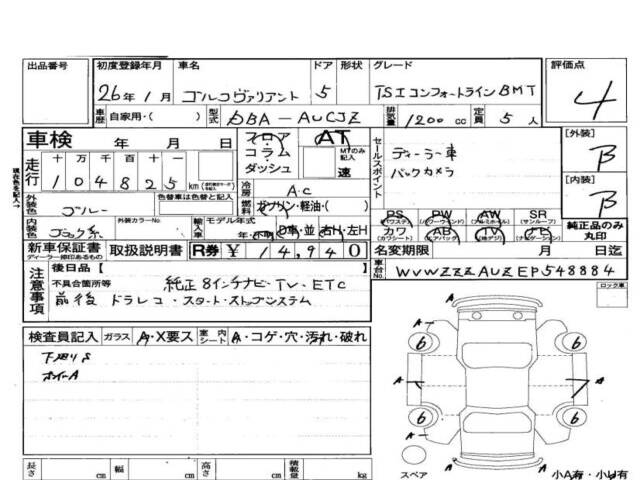 出品番号 初度登録年月 車名 ドア 形状 グレード 評価点
26年1月 ゴルフヴァリアント 5 TSIコンフォートラインBMT 4
車歴 自家用・( ) 型式 DBA-AUCJZ 排気量 1200cc 定員 5人
車検 年 月 日 フロア コラム ダッシュ AT MTのみ記入 速 セールスポイント ディーラー車 [外装] B
走行 十万千百十一 104825km 冷房 A・C バックカメラ [内装] B
外装色 ブルー 色替車は色替と記入 燃料 ガソリン・軽油・( )
内装色 ブラック系 外装カラーNo. 輸入車 モデル年式 D車・並 右H・左H
PS (パワステ) PW (パワーウインド) AW (アルミホイール) SR (サンルーフ) 純正品のみ丸印
カワ (カワシート) AB (エアバッグ) TV (地デジ) ナビ (ナビゲーション)
新車保証書 ディーラー印あるもの 取扱説明書 R券 ¥14,940 名変期限 月 日迄
車台No. WVWZZZAUZEP548884
ロック車
注意事項 後日品[ ]
不具合箇所等 純正8インチナビ・TV・ETC
前後ドラレコ・スタートストップシステム
検査員記入 ガラス A・X要ス 室内シート A・コゲ・穴・汚れ・破れ
下廻りS
ホイールA
A A
6 6
A A
6 6
A
スペア 小A有・小U有
長さ cm 幅 cm 高さ cm 積載量 kg
現在色を記入→